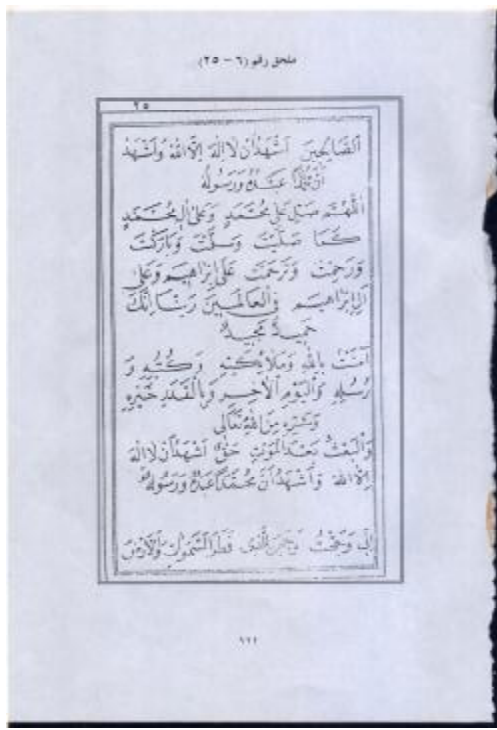 ملحق رقم (٦ – ٢٥)
٢٥
الصَّالِحِينَ اَشْهَدُ اَنْ لَا اِلٰهَ اِلَّا اللهُ وَاَشْهَدُ
اَنَّ مُحَمَّدًا عَبْدُهُ وَرَسُولُهُ
اَللّٰهُمَّ صَلِّ عَلٰى مُحَمَّدٍ وَعَلٰى اٰلِ مُحَمَّدٍ
كَمَا صَلَّيْتَ وَسَلَّمْتَ وَبَارَكْتَ
وَرَحِمْتَ وَتَرَحَّمْتَ عَلٰى اِبْرَاهِيمَ وَعَلٰى
اٰلِ اِبْرَاهِيمَ فِى الْعَالَمِينَ رَبَّنَا اِنَّكَ
حَمِيدٌ مَجِيدٌ
اٰمَنْتُ بِاللهِ وَمَلَائِكَتِهِ وَكُتُبِهِ وَ
رُسُلِهِ وَالْيَوْمِ الْاٰخِرِ وَبِالْقَدَرِ خَيْرِهِ
وَشَرِّهِ مِنَ اللهِ تَعَالٰى
وَالْبَعْثُ بَعْدَ الْمَوْتِ حَقٌّ اَشْهَدُ اَنْ لَا اِلٰهَ
اِلَّا اللهُ وَاَشْهَدُ اَنَّ مُحَمَّدًا عَبْدُهُ وَرَسُولُهُ
اِنِّى وَجَّهْتُ وَجْهِىَ لِلَّذِى فَطَرَ السَّمٰوَاتِ وَالْاَرْضَ